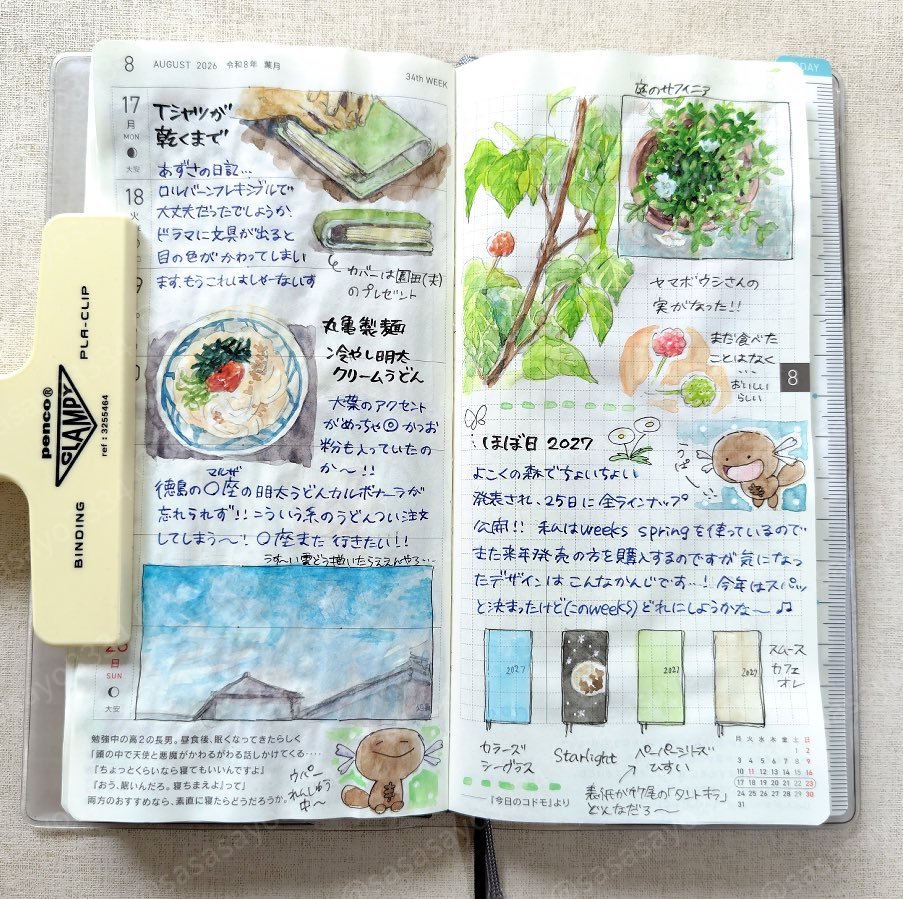 8 AUGUST 2026 令和8年 葉月
34th WEEK
17
月
MON
大安
18
火
Tシャツが
乾くまで
あずさの日記…
ロルバーンフレキシブルで
大丈夫だったでしょうか、
ドラマに文具が出ると
目の色がかわってしまい
ます、もうこれはしゃーないす
カバーは園田(夫)
のプレゼント
丸亀製麺
冷やし明太
クリームうどん
大葉のアクセント
がめっちゃ◎かつお
粉も入っていたの
か〜!!
マルザ
徳島の〇座の明太うどんカルボナーラが
忘れられず!!こういう系のうどんつい注文
してしまう〜!〇座また行きたい!!
うす〜い雲どう描いたらええんやろ…
日
SUN
大安
勉強中の高2の長男。昼食後、眠くなってきたらしく
「頭の中で天使と悪魔がかわるがわる話しかけてくる‥‥
『ちょっとくらいなら寝てもいいんですよ』
『おう、眠いんだろ。寝ちまえよ』って」
両方のおすすめなら、素直に寝たらどうだろうか。
ウパー
れんしゅう
中〜
penco®
CLAMPY
PLA-CLIP
BINDING
ref : 3255464
DAY
庭のサフィニア
ヤマボウシさんの
実がなった!!
まだ食べた
ことはなく
…
おいしい
らしい
8
ほぼ日 2027
うぱー
よこくの森でちょいちょい
発表され、25日に全ラインナップ
公開!! 私はweeks springを使っているので
また来年発売の方を購入するのですが気になっ
たデザインはこんなかんじです…! 今年はスパッ
と決まったけど(このweeks)どれにしようかな〜♫
2027
2027
2027
スムース
カフェ
オレ
カラーズ
シーグラス
Starlight
ペーパーシリーズ
ひすい
表紙がサワ屋の「タントキラ」
どんなだろ〜
―『今日のコドモ』より
月 火 水 木 金 土 日
1 2
3 4 5 6 7 8 9
10 11 12 13 14 15 16
17 18 19 20 21 22 23
24 25 26 27 28 29 30
31
@sasasayu